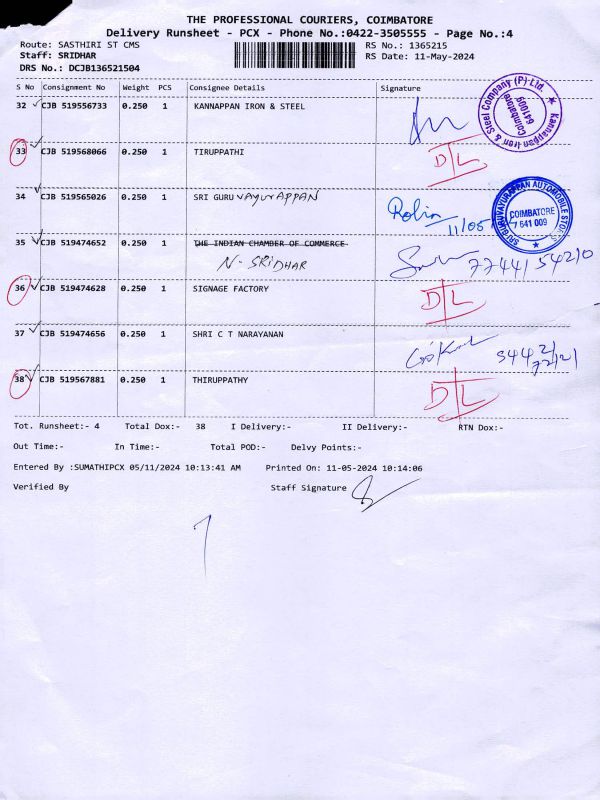 THE PROFESSIONAL COURIERS, COIMBATORE
Delivery Runsheet - PCX - Phone No.:0422-3505555 - Page No.:4
Route: SASTHIRI ST CMS RS No.: 1365215
Staff: SRIDHAR RS Date: 11-May-2024
DRS No.: DCJB136521504
S No Consignment No Weight PCS Consignee Details Signature
32 CJB 519556733 0.250 1 KANNAPPAN IRON & STEEL
Kannappan Iron & Steel Company (P) Ltd. Coimbatore 641009
33 CJB 519568066 0.250 1 TIRUPPATHI DL
34 CJB 519565026 0.250 1 SRI GURU VAYURAPPAN Robin 11/05
SRI GURUVAYURAPPAN AUTOMOBILE STORES COIMBATORE 641 009
35 CJB 519474652 0.250 1 THE INDIAN CHAMBER OF COMMERCE
N- SRIDHAR
36 CJB 519474628 0.250 1 SIGNAGE FACTORY DL
37 CJB 519474656 0.250 1 SHRI C T NARAYANAN
38 CJB 519567881 0.250 1 THIRUPPATHY DL
Tot. Runsheet:- 4 Total Dox:- 38 I Delivery:- II Delivery:- RTN Dox:-
Out Time:- In Time:- Total POD:- Delvy Points:-
Entered By :SUMATHIPCX 05/11/2024 10:13:41 AM Printed On: 11-05-2024 10:14:06
Verified By Staff Signature